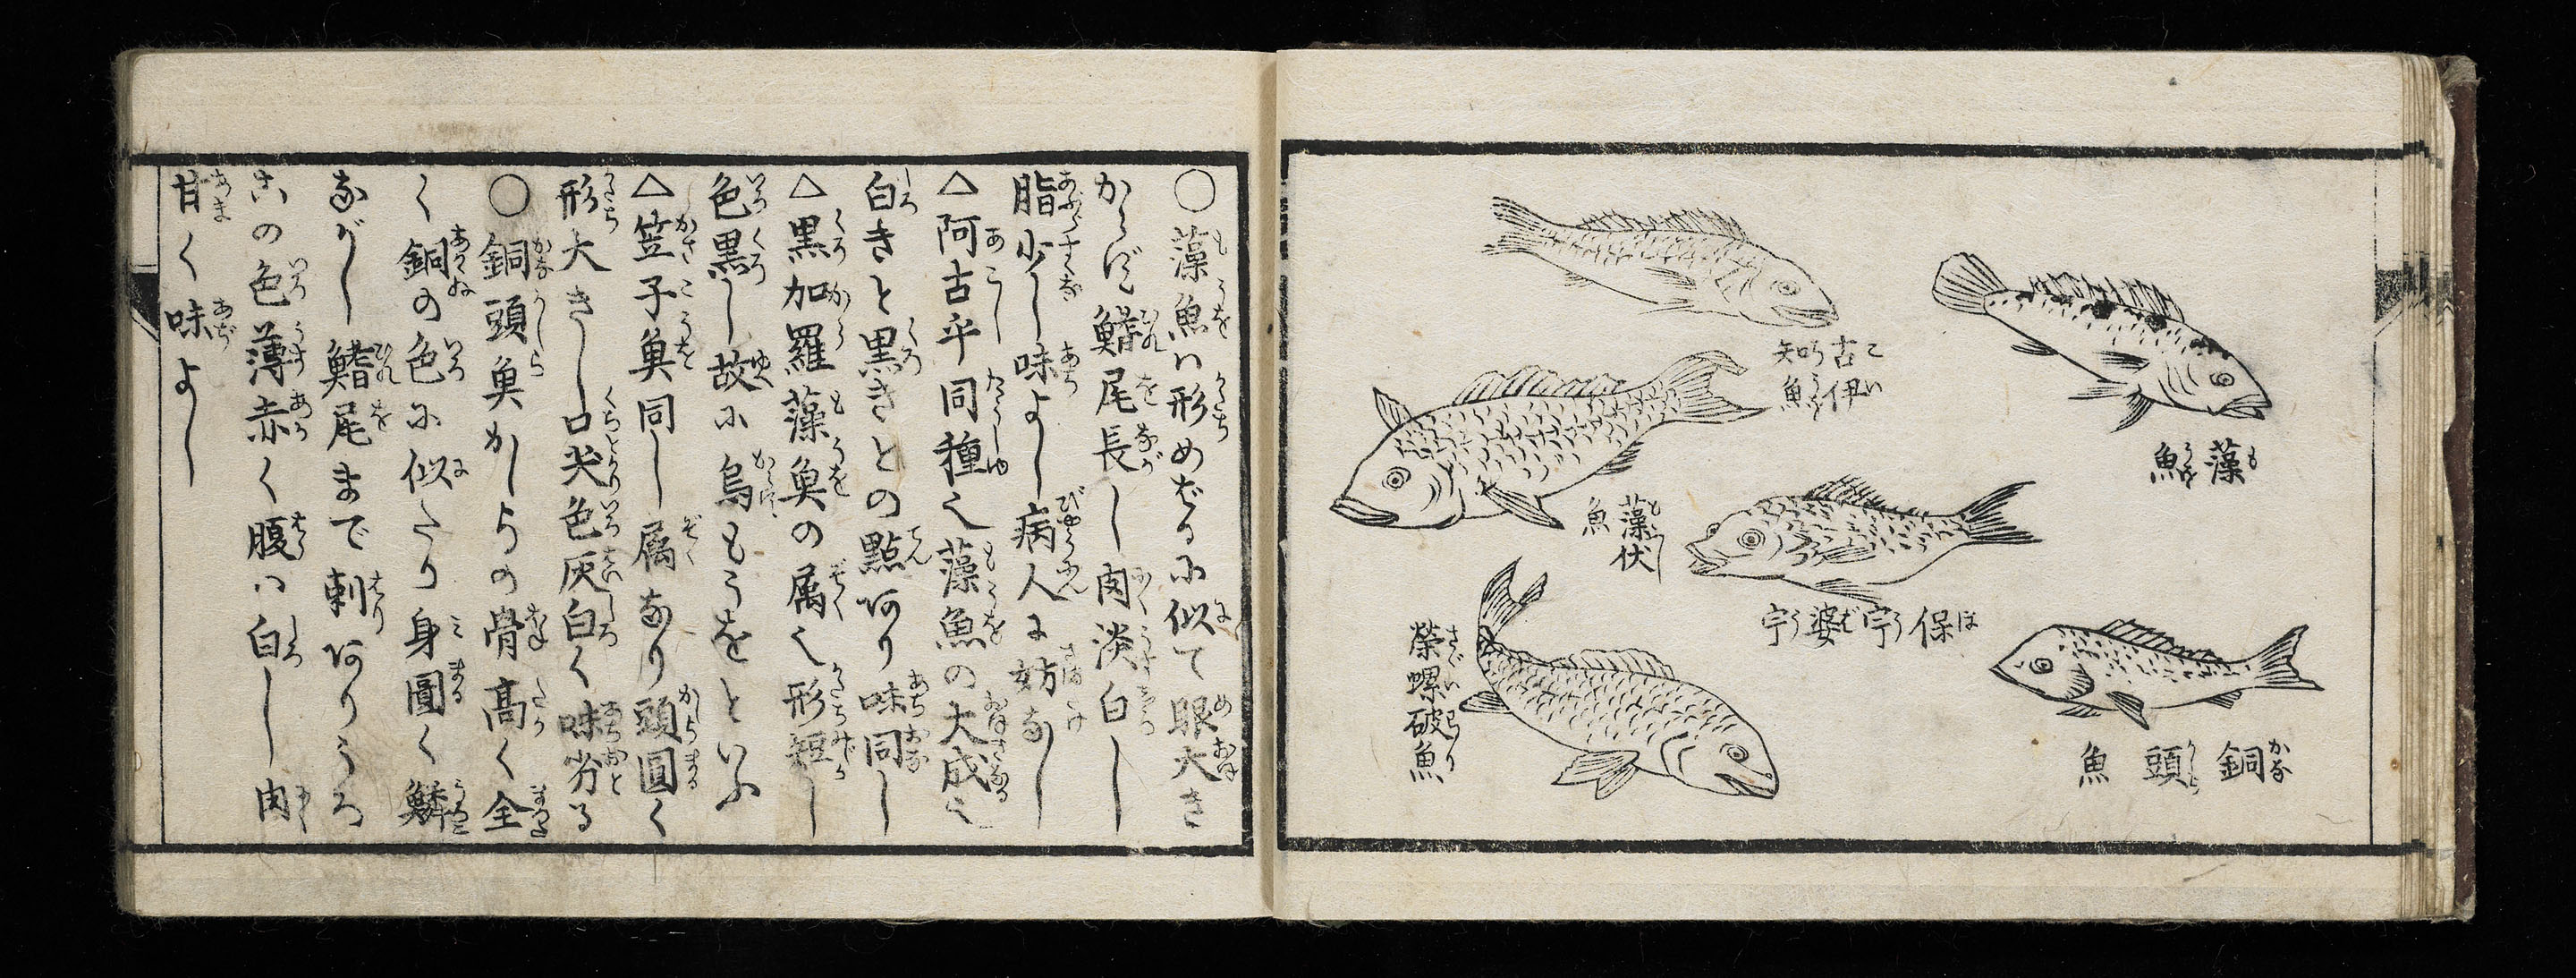 藻魚
古伊知魚
藻伏魚
保宇婆宇
銅頭魚
榮螺破魚
○藻魚ハ形めばるに似て眼大き
からず鰭尾長し肉淡白し
脂少し味よし病人に妨なし
△阿古平同種也藻魚の大成也
白きと黒きとの點あり味同し
△黒加羅藻魚の属也形短し
色黒し故に烏もうをといふ
△笠子魚同し属なり頭圓く
形大きし口尖色灰白く味劣る
○銅頭魚かしらの骨高く全
く銅の色に似たり身圓く鱗
ながし鰭尾まで刺ありうろ
この色薄赤く腹ハ白し肉
甘く味よし